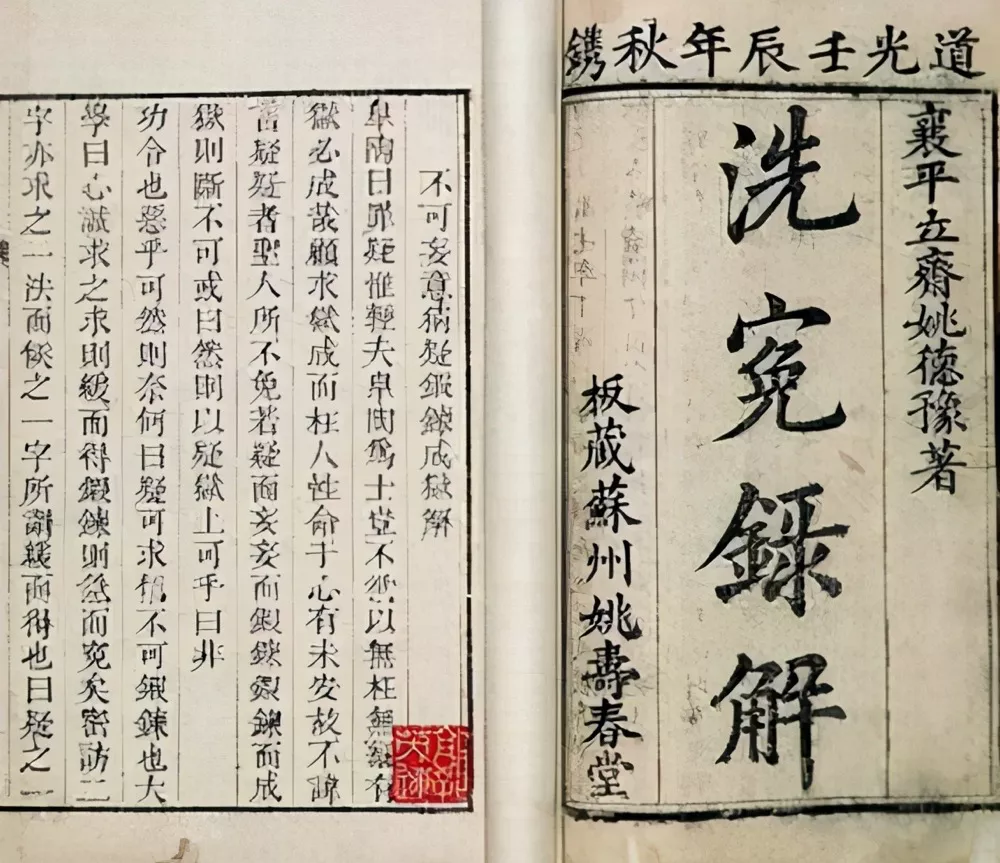 道光壬辰年秋鐫
襄平立齋姚德豫著
洗冤錄解
板藏蘇州姚壽春堂
不可妄意病疑鍛鍊成獄解
皋陶曰罪疑惟輕夫皋陶爲士豈不能以無枉無縱有
獄必成哉顧求獄成而枉人性命于心有未安故不諱
言疑疑者聖人所不免若疑而妄妄而鍛鍊鍛鍊而成
獄則斷不可或曰然則以疑獄上可乎曰非
功令也惡乎可然則奈何曰疑可求不可鍛鍊也大
學曰心誠求之求則緩而得鍛鍊則而冤矣密訪二
字亦求之一法而俟之一字所謂緩而得也曰疑之一